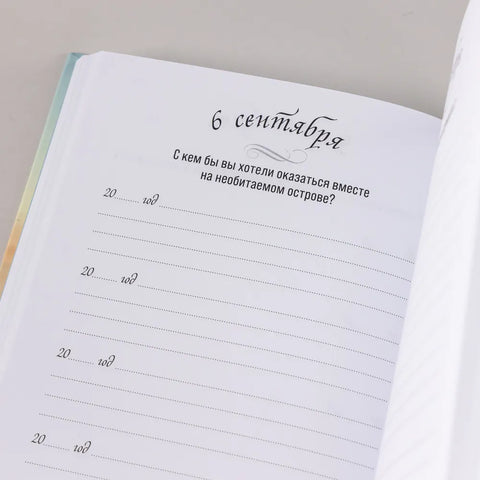 6 сентября
С кем бы вы хотели оказаться вместе
на необитаемом острове?
20 ........ год
20 ........ год
20 ........ год
20 ........ год